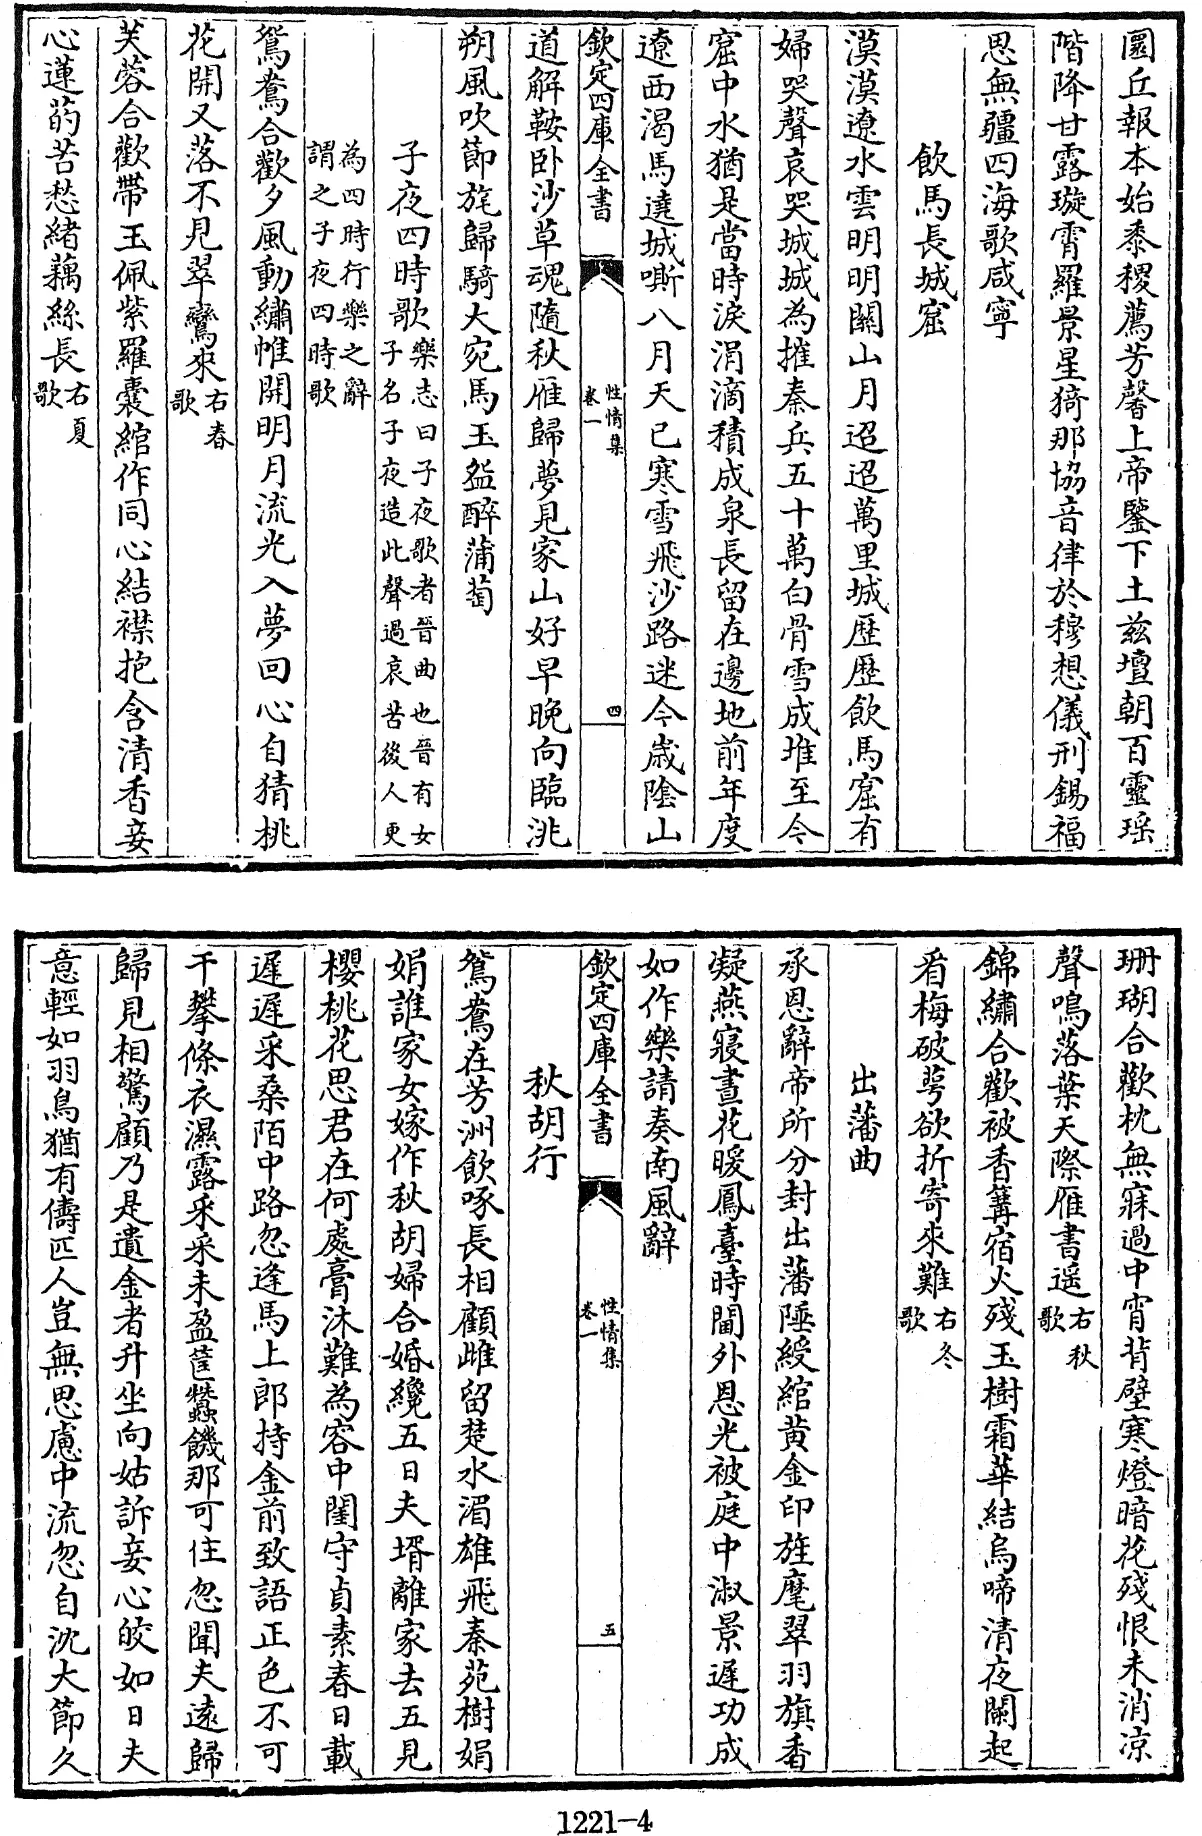 圜丘報本始黍稷薦芳馨上帝鑒下土兹壇朝百靈瑶
階降甘露璇霄羅景星猗那協音律於穆想儀刑錫福
思無疆四海歌咸寧
飲馬長城窟
漠漠遼水雲明明關山月迢迢萬里城歷歷飲馬窟有
婦哭聲哀哭城城為摧秦兵五十萬白骨雪成堆至今
窟中水猶是當時淚涓滴積成泉長留在邊地前年度
遼西渴馬遶城嘶八月天已寒雪飛沙路迷今歲陰山
欽定四庫全書 性情集 卷一 四
道解鞍卧沙草魂隨秋雁歸夢見家山好早晚向臨洮
朔風吹節旄歸騎大宛馬玉盌醉蒲萄
子夜四時歌樂志曰子夜歌者晉曲也晉有女
子名子夜造此聲過哀苦後人更
為四時行樂之辭
謂之子夜四時歌
鴛鴦合歡夕風動繡帷開明月流光入夢回心自猜桃
花開又落不見翠鸞來右春歌
芙蓉合歡帶玉佩紫羅囊綰作同心結襟抱含清香妾
心蓮菂苦愁緒藕絲長右夏歌
珊瑚合歡枕無寐過中宵背壁寒燈暗花殘恨未消凉
聲鳴落葉天際雁書遥右秋歌
錦繡合歡被香篝宿火殘玉樹霜華結烏啼清夜闌起
看梅破萼欲折寄來難右冬歌
出藩曲
承恩辭帝所分封出藩陲綬綰黄金印旌麾翠羽旗香
凝燕寢晝花暖鳳臺時閫外恩光被庭中淑景遲功成
如作樂請奏南風辭
欽定四庫全書 性情集 卷一 五
秋胡行
鴛鴦在芳洲飲啄長相顧雌留楚水湄雄飛秦苑樹娟
娟誰家女嫁作秋胡婦合婚纔五日夫壻離家去五見
櫻桃花思君在何處膏沐難為容中閨守貞素春日載
遲遲采桑陌中路忽逢馬上郎持金前致語正色不可
干攀條衣濕露采采未盈筐蠶饑那可住忽聞夫遠歸
歸見相驚顧乃是遺金者升坐向姑訴妾心皎如日夫
意輕如羽鳥猶有儔匹人豈無思慮中流忽自沈大節久
1221-4